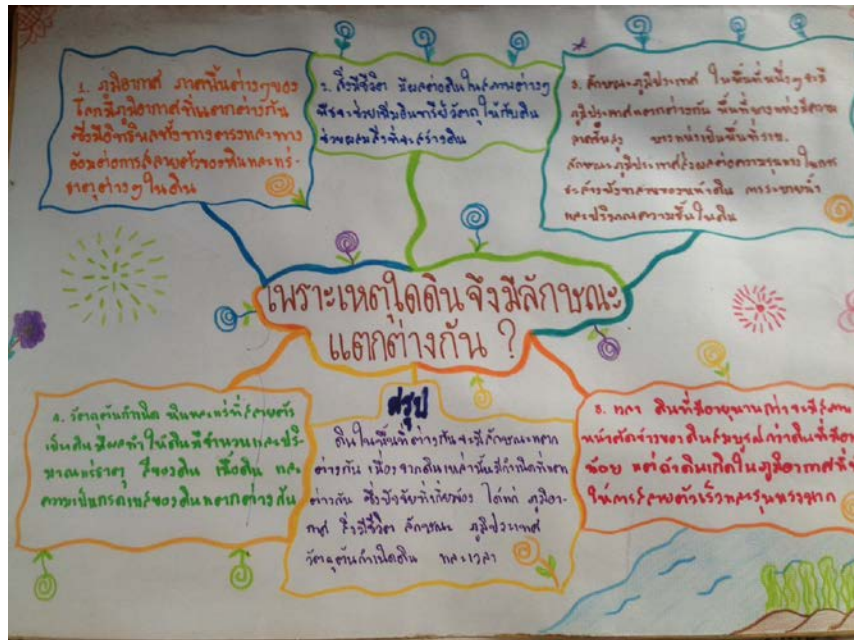 1. ภูมิอากาศ ภาคพื้นต่างๆของ
โลกมีภูมิอากาศที่แตกต่างกัน
ซึ่งมีอิทธิพลทั้งทางตรงและทาง
อ้อมต่อการสลายตัวของหินและแร่-
ธาตุต่างๆในดิน
2. สิ่งมีชีวิต มีผลต่อดินในสภาพต่างๆ
พืชจะช่วยเพิ่มอินทรีย์วัตถุให้กับดิน
ช่วยผสมสิ่งที่จะสร้างดิน
3. ลักษณะภูมิประเทศ ในพื้นที่หนึ่งๆจะมี
ภูมิประเทศแตกต่างกัน พื้นที่บางแห่งมีความ
ลาดชันสูง บางแห่งเป็นพื้นที่ราบ
ลักษณะภูมิประเทศส่งผลต่อความรุนแรงในการ
ชะล้างพังทลายของหน้าดิน การระบายน้ำ
และปริมาณความชื้นในดิน
เพราะเหตุใดดินจึงมีลักษณะ
แตกต่างกัน ?
4. วัตถุต้นกำเนิด หินและแร่ที่สลายตัว
เป็นดินมีผลทำให้ดินมีจำนวนและปริ-
มาณแร่ธาตุ สีของดิน เนื้อดิน และ
ความเป็นกรดเบสของดินแตกต่างกัน
สรุป
ดินในพื้นที่ต่างกันจะมีลักษณะแตก
ต่างกัน เนื่องจากดินเหล่านั้นมีกำเนิดที่แตก
ต่างกัน ซึ่งปัจจัยที่เกี่ยวข้อง ได้แก่ ภูมิอา-
กาศ สิ่งมีชีวิต ลักษณะ ภูมิประเทศ
วัตถุต้นกำเนิดดิน และเวลา
5. เวลา ดินที่มีอายุนานกว่าจะมีสภาพ
หน้าตัดข้างของดินสมบูรณ์กว่าดินที่มีอา
น้อย แต่ถ้าดินเกิดในภูมิอากาศที่
ให้การสลายตัวเร็วและรุนแรงมาก